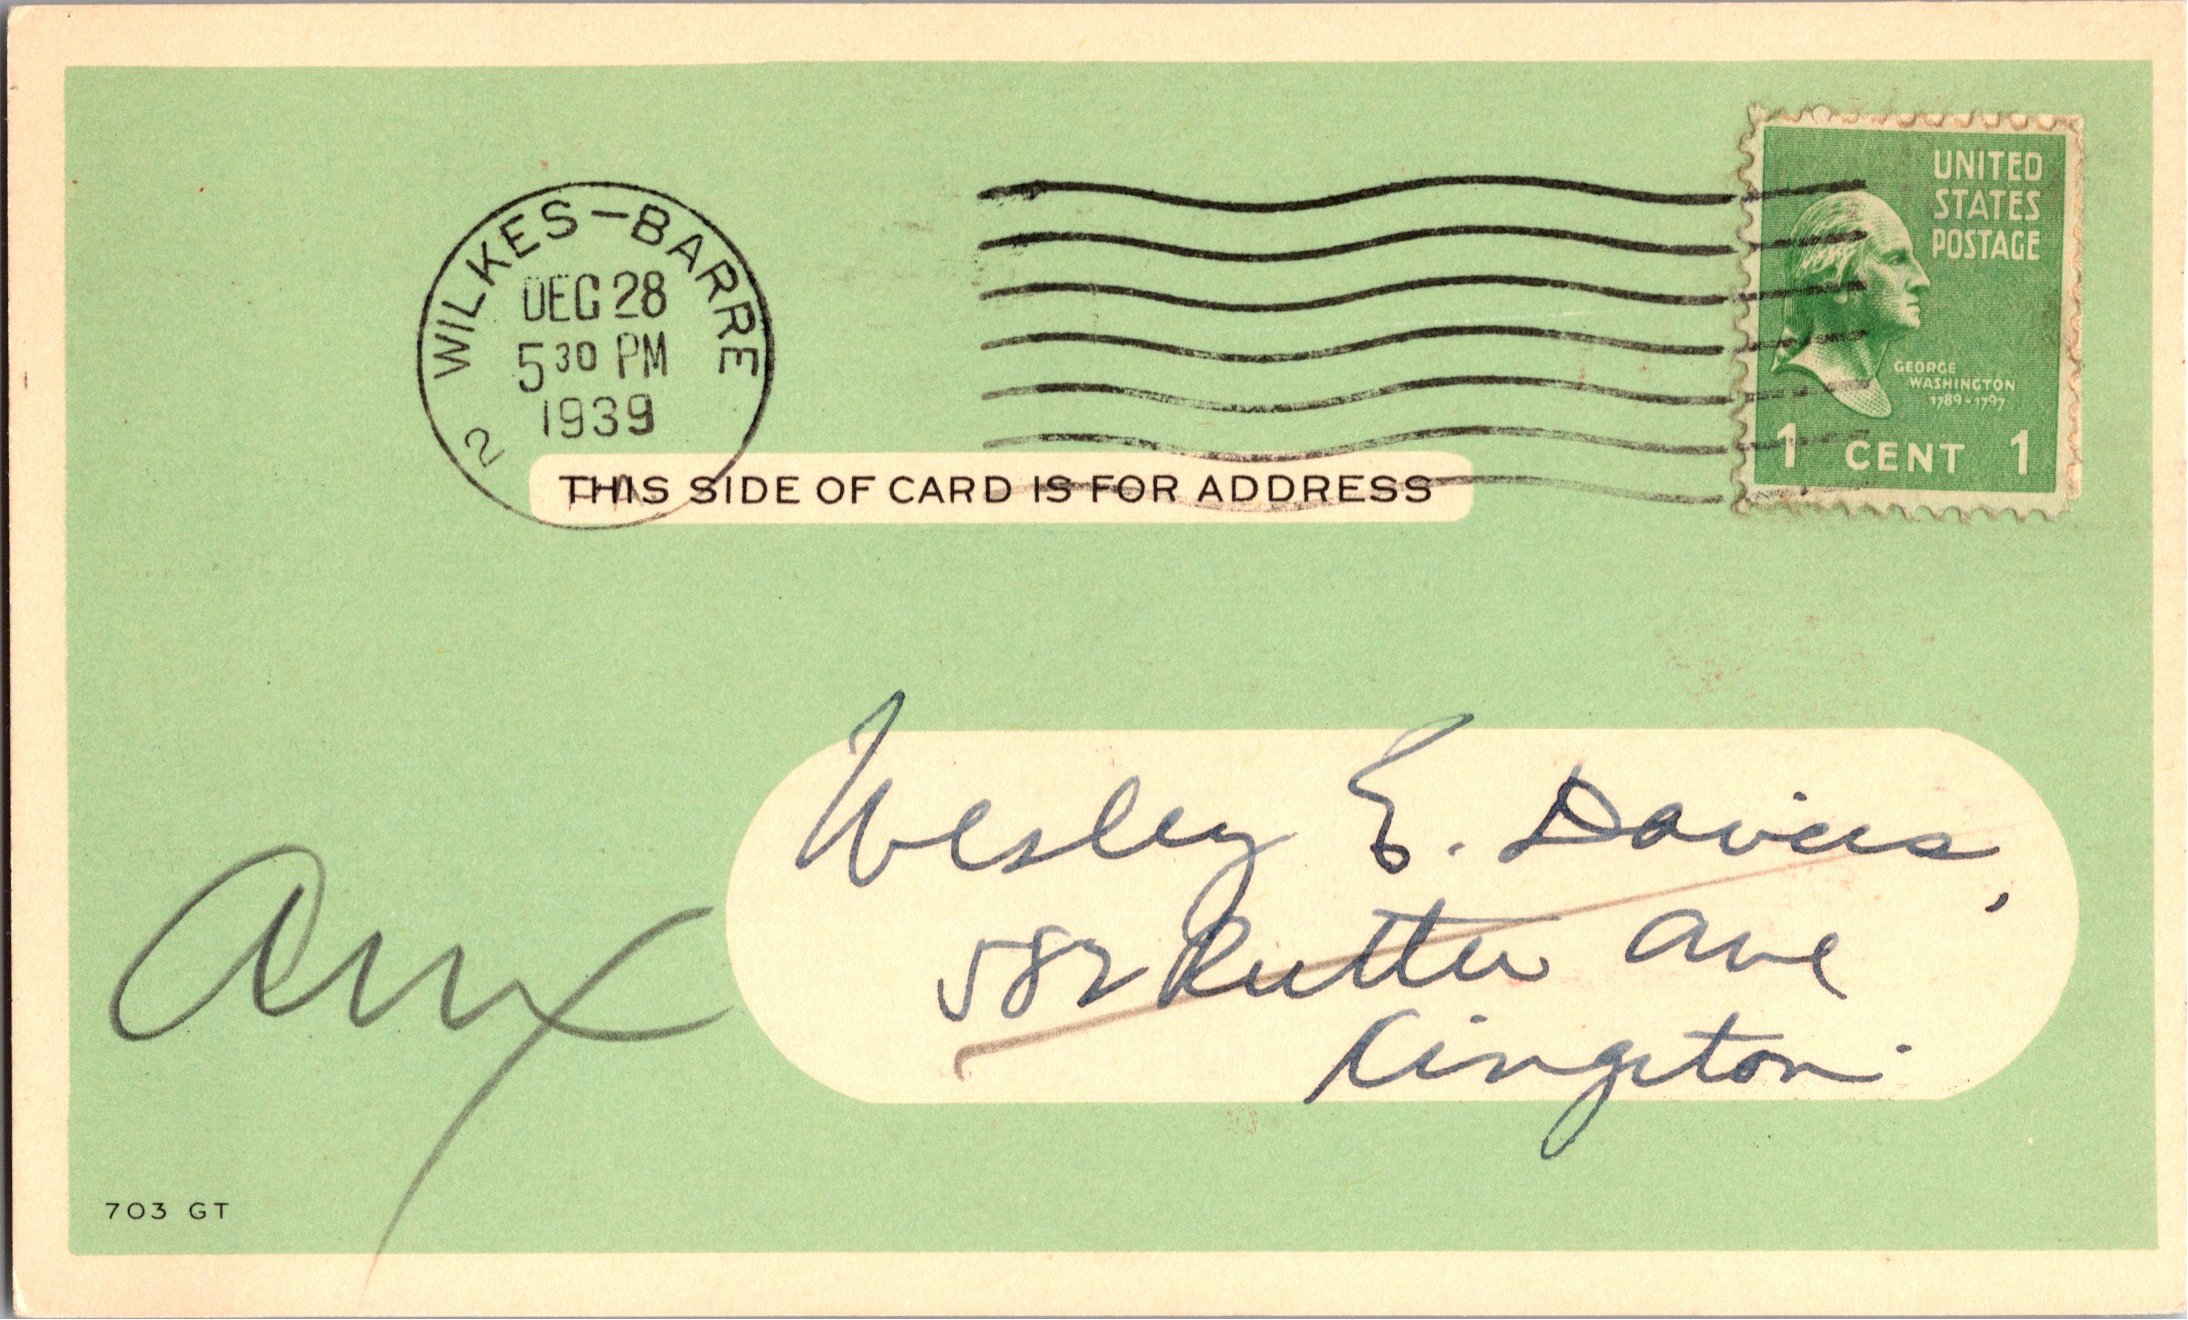 WILKES-BARRE
DEC 28
5 30 PM
1939
2
PA
UNITED
STATES
POSTAGE
GEORGE
WASHINGTON
1789-1797
1 CENT 1
THIS SIDE OF CARD IS FOR ADDRESS
Wesley E. Davies,
582 Rutter Ave
Kingston.
703 GT